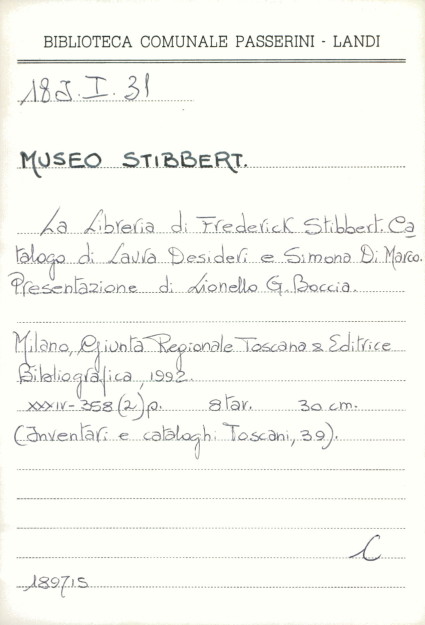 BIBLIOTECA COMUNALE PASSERINI - LANDI
18J.I.31
MUSEO STIBBERT.
La Libreria di Frederick Stibbert. Ca
talogo di Laura Desideri e Simona Di Marco.
Presentazione di Lionello G. Boccia.
Milano, Giunta Regionale Toscana & Editrice
Bibliografica, 1992.
XXXIV-358 (2) p. 8 tav. 30 cm.
(Inventari e cataloghi Toscani, 39).
C
189715